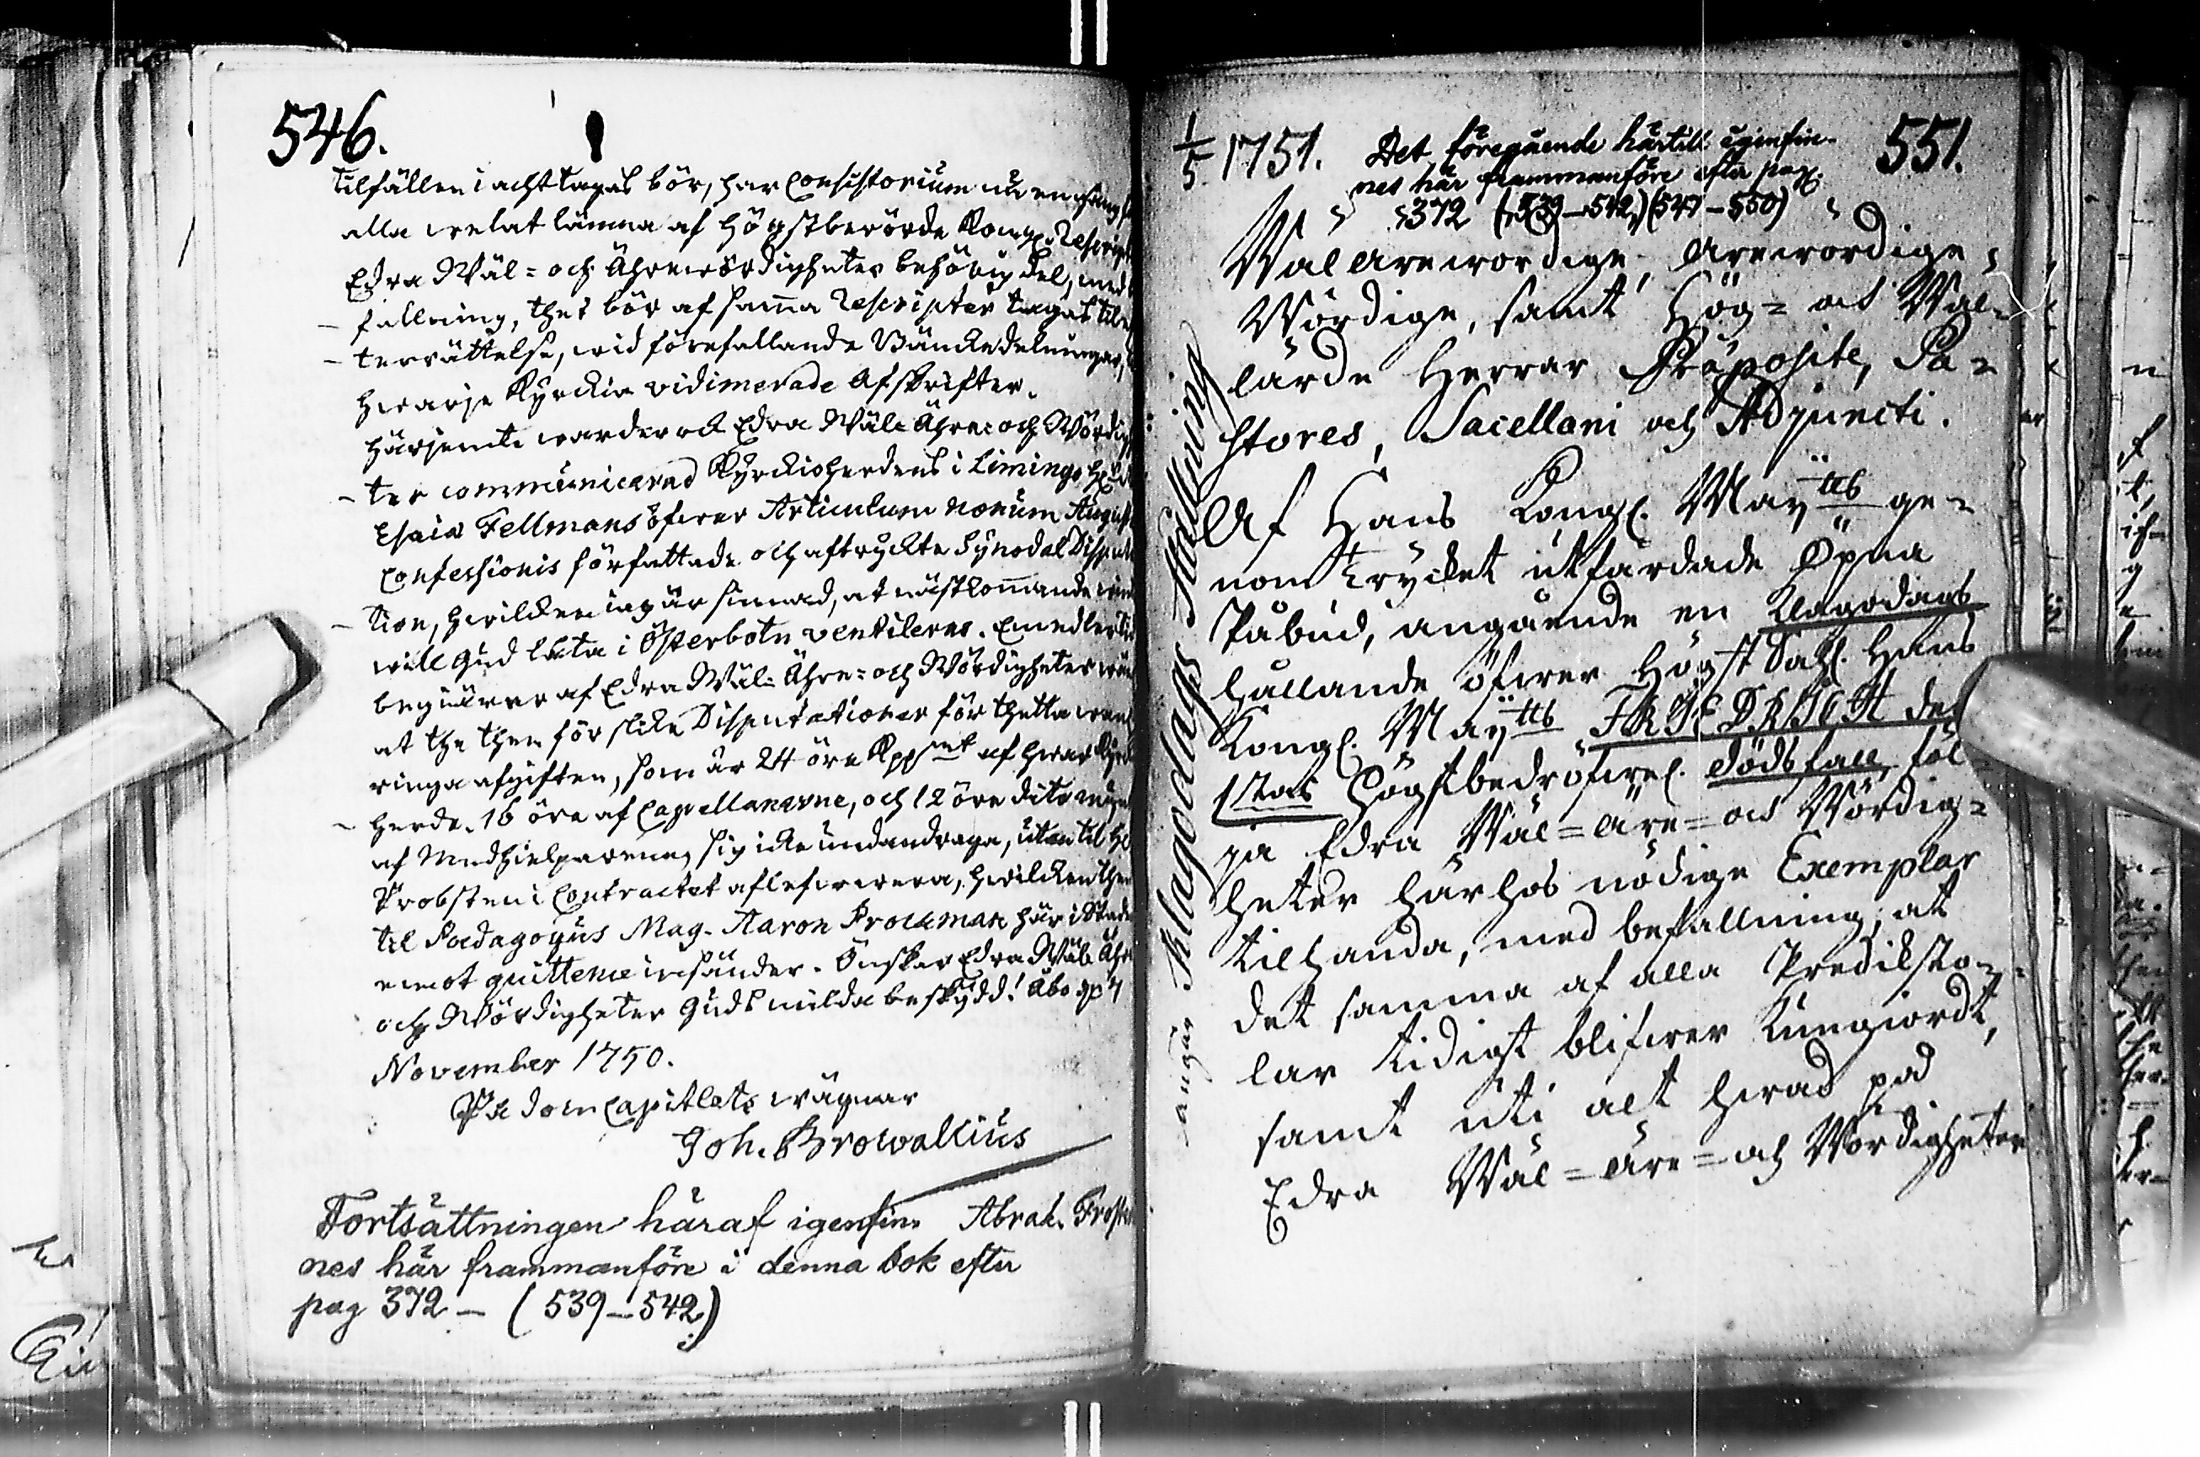 546.
tilfällen i acht tagas bör, har Consistorium nu en gång för
alla welat lämna af högstberörde Kongl. Rescript
Edra Wäl- och Ährewördigheter behörig del, med be
- fallning, thet bör af samma Rescripter tagas til
- terrättelse, wid förefallande Bänckedelningar,
hwarje Kyrckia vidimerade Afskrifter.
Härjemte warder ock Edra Wäl- Ähre- och Wördig
- ter communicerad Kyrckioherdens i Limingo H
Esaiæ Fellmans öfwer Articulum nonum August
Confessionis författade och aftryckte Synodal Disputa
- tion, hwilken jag är sinnad, at nästkommande
will Gud låta i Österbotn ventileras. Emedlertid
begiäres af Edra Wäl- Ähre- och Wördigheter
at the then för slike Disputationer för thetta
ringa afgiften, som är 24 öre Kppmt af hwar Kyrck
- herde, 16 öre af Capellanerne, och 12 öre dito mynt
af Medhielparena, sig icke undandraga, utan til H
Probsten i Contractet aflefwerera, hwilcken then
til Pædagogus Mag. Aaron Prockman här i Staden
emot quittence insänder. Önskar Edra Wäl- Ähre
och Wördigheter Guds milda beskydd! Åbo d. 7
November 1750.
På DomCapitlets wägnar
Joh. Browallius
Fortsättningen häraf igenfin- Abrah. Frost
nes här frammanföre i denna bok efter
pag 372 - (539-542)
1/5 1751. Det föregående härtill igenfin- 551.
nes här frammanföre efter pag.
372 (539-542) (547-550)
Wäl ärewördige, Ärewördige,
Wördige, samt Hög- och Wäl-
lärde Herrar Præposite, Pa-
stores, Sacellani och Adjuncti.
Af Hans Kongl. Maÿtts ge-
nom trycket utfärdade Öpna
Påbud, angående en Klagodags
hållande öfwer Högst Sahl. Hans
Kongl. Maÿtts FRIEDRICH des
1stas Högstbedröfwel. dödsfall, föl
ja Edra Wäl- Äre- och Wördig-
heter härhos nödige Exemplar
tilhanda, med befallning, at
det samma af alla Prediksto-
lar tidigt blifwer kungiordt,
samt uti alt hwad på
Edra Wäl- Äre- och Wördigheter
angår Klagodags ställning